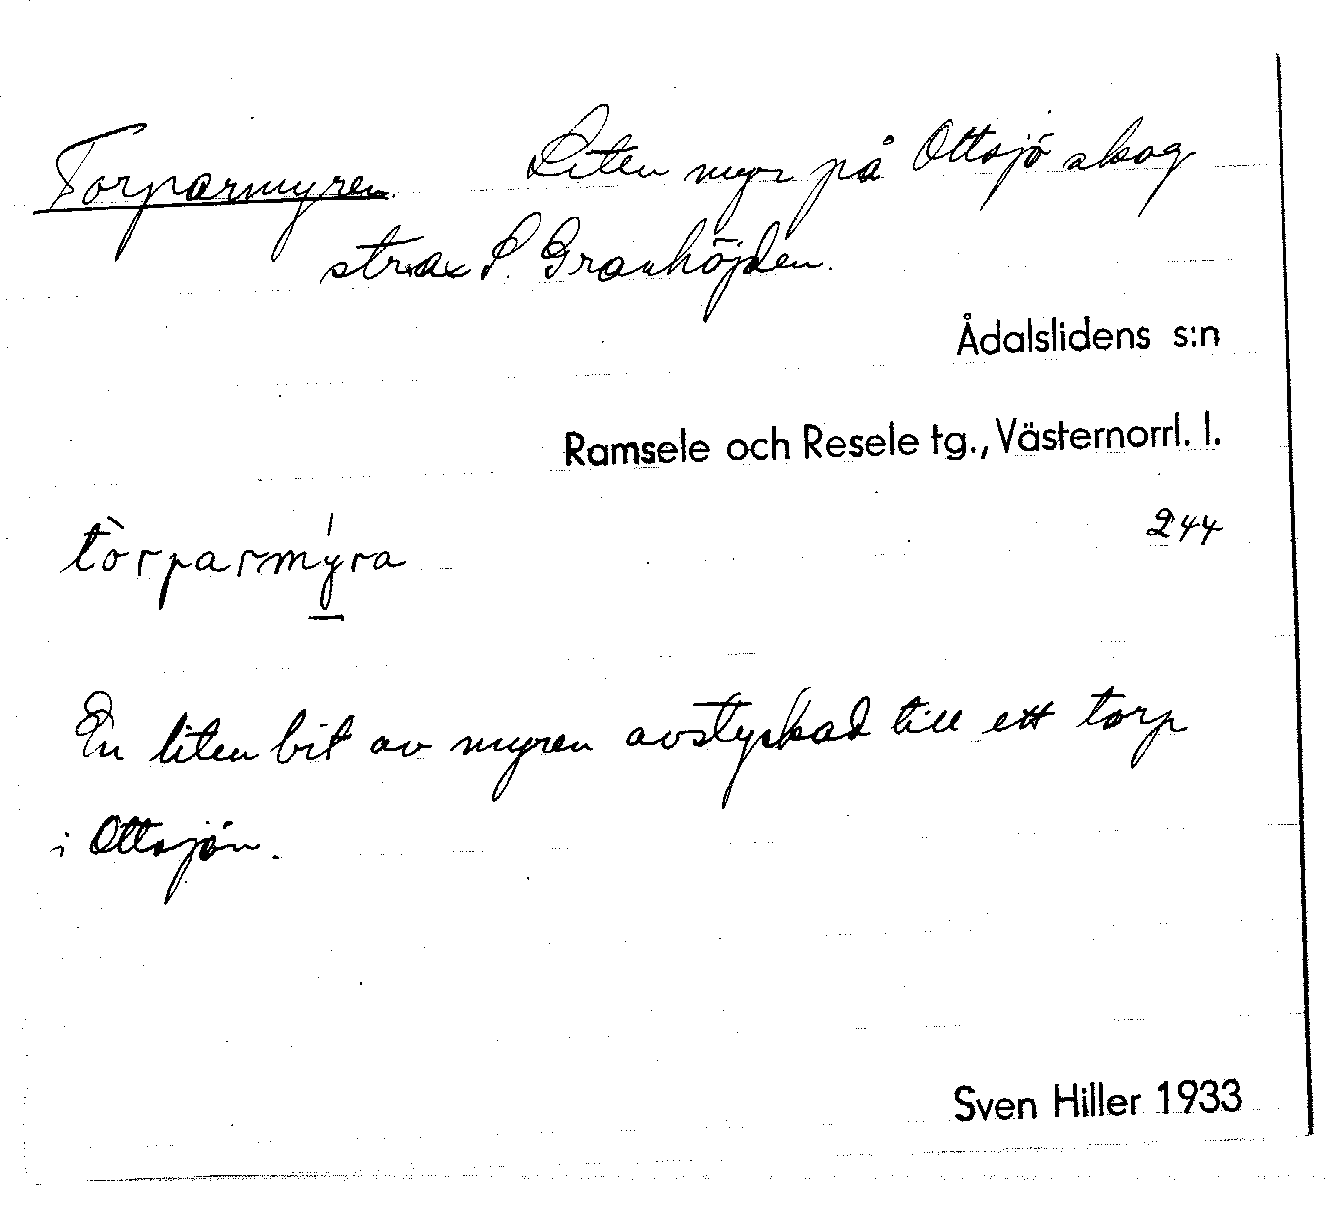 Torparmyren. Liten myr på Ottsjö skog
strax S. Granhöjden.
Ådalslidens s:n
Ramsele och Resele tg., Västernorrl. l.
tòrparmýra 244
En liten bit av myren avstyckad till ett torp
i Ottsjön.
Sven Hiller 1933